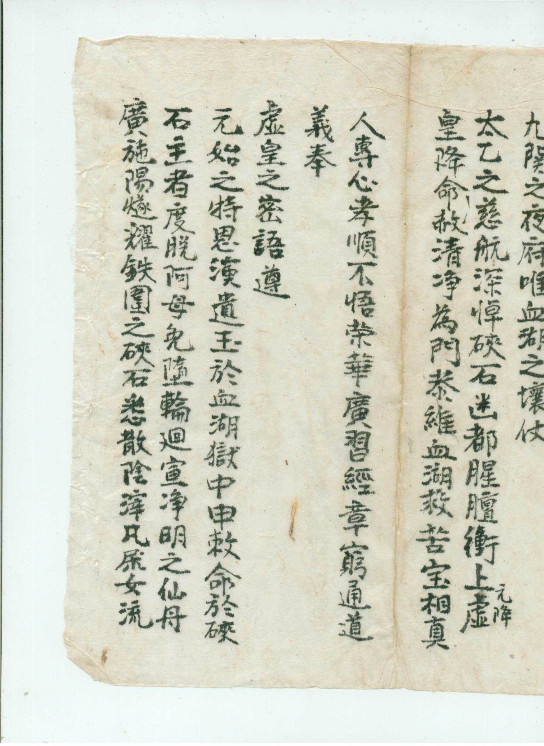 九陧之夜府唯血湖之壤仗
太乙之慈航深悼硤石迷都腥膻衝上虛
元降
皇降命赦清净為門恭維血湖救苦宝相真
人專心孝順不悟荣華廣習經章窮通道
義奉
虛皇之密語遵
元始之特恩演遺玉於血湖獄中申敕命於硤
石主者度脫阿母免墮輪廻宣净明之仙丹
廣施陽燧耀鉄圍之硤石悉散陰滓凡居女流